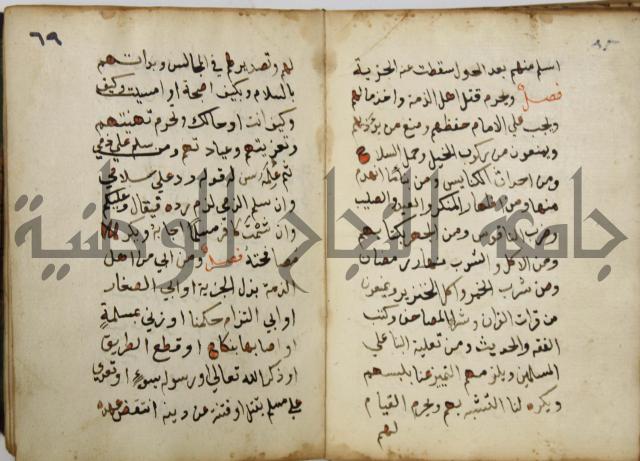 اسلم منهم بعد الحول سقطت عنه الجزية
فصل ويحرم قتل اهل الذمة واخذ مالهم
ويجب علي الامام حفظهم ومنع من يؤذيهم
ويمنعون من ركوب الخيل وحمل السلاح
ومن احداث الكنايس ومن بنا ما انهدم
منها ومن اظهار المنكر والعيد والصليب
وضرب الناقوس ومن الجهر بكتابهم
ومن الاكل والشرب نهار رمضان
ومن شرب الخمر واكل الخنزير ويمنعون
من قرات القران وشرا المصاحف وكتب
الفقه والحديث ومن تعلية البنا علي
المسلمين ويلزمهم التمييز عنا بلبسهم
ويكره لنا التشبه بهم ويحرم القيام
لهم
٦٩
لهم وتصديرهم في المجالس وبداتهم
بالسلام وبكيف اصبحت او امسيت وكيف
وكيف انت او حالك ويحرم تهنيتهم
وتعزيتهم وعيادتهم ومن سلم علي ذمي
ثم علمه سن له قوله رد علي سلامي
وان سلم الذمي لزم رده فيقال وعليكم
وان شمت كافر مسلما اجابه وتكره
مصافحته فصل ومن ابي من اهل
الذمة بذل الجزية او ابي الصغار
او ابي التزام حكمنا او زني بمسلمة
او اصابها بنكاح او قطع الطريق
او ذكر الله تعالي او رسوله بسوء او تعدي
علي مسلم بقتل او فتنة عن دينه انتقض عهده
جامعة النجاح الوطنية